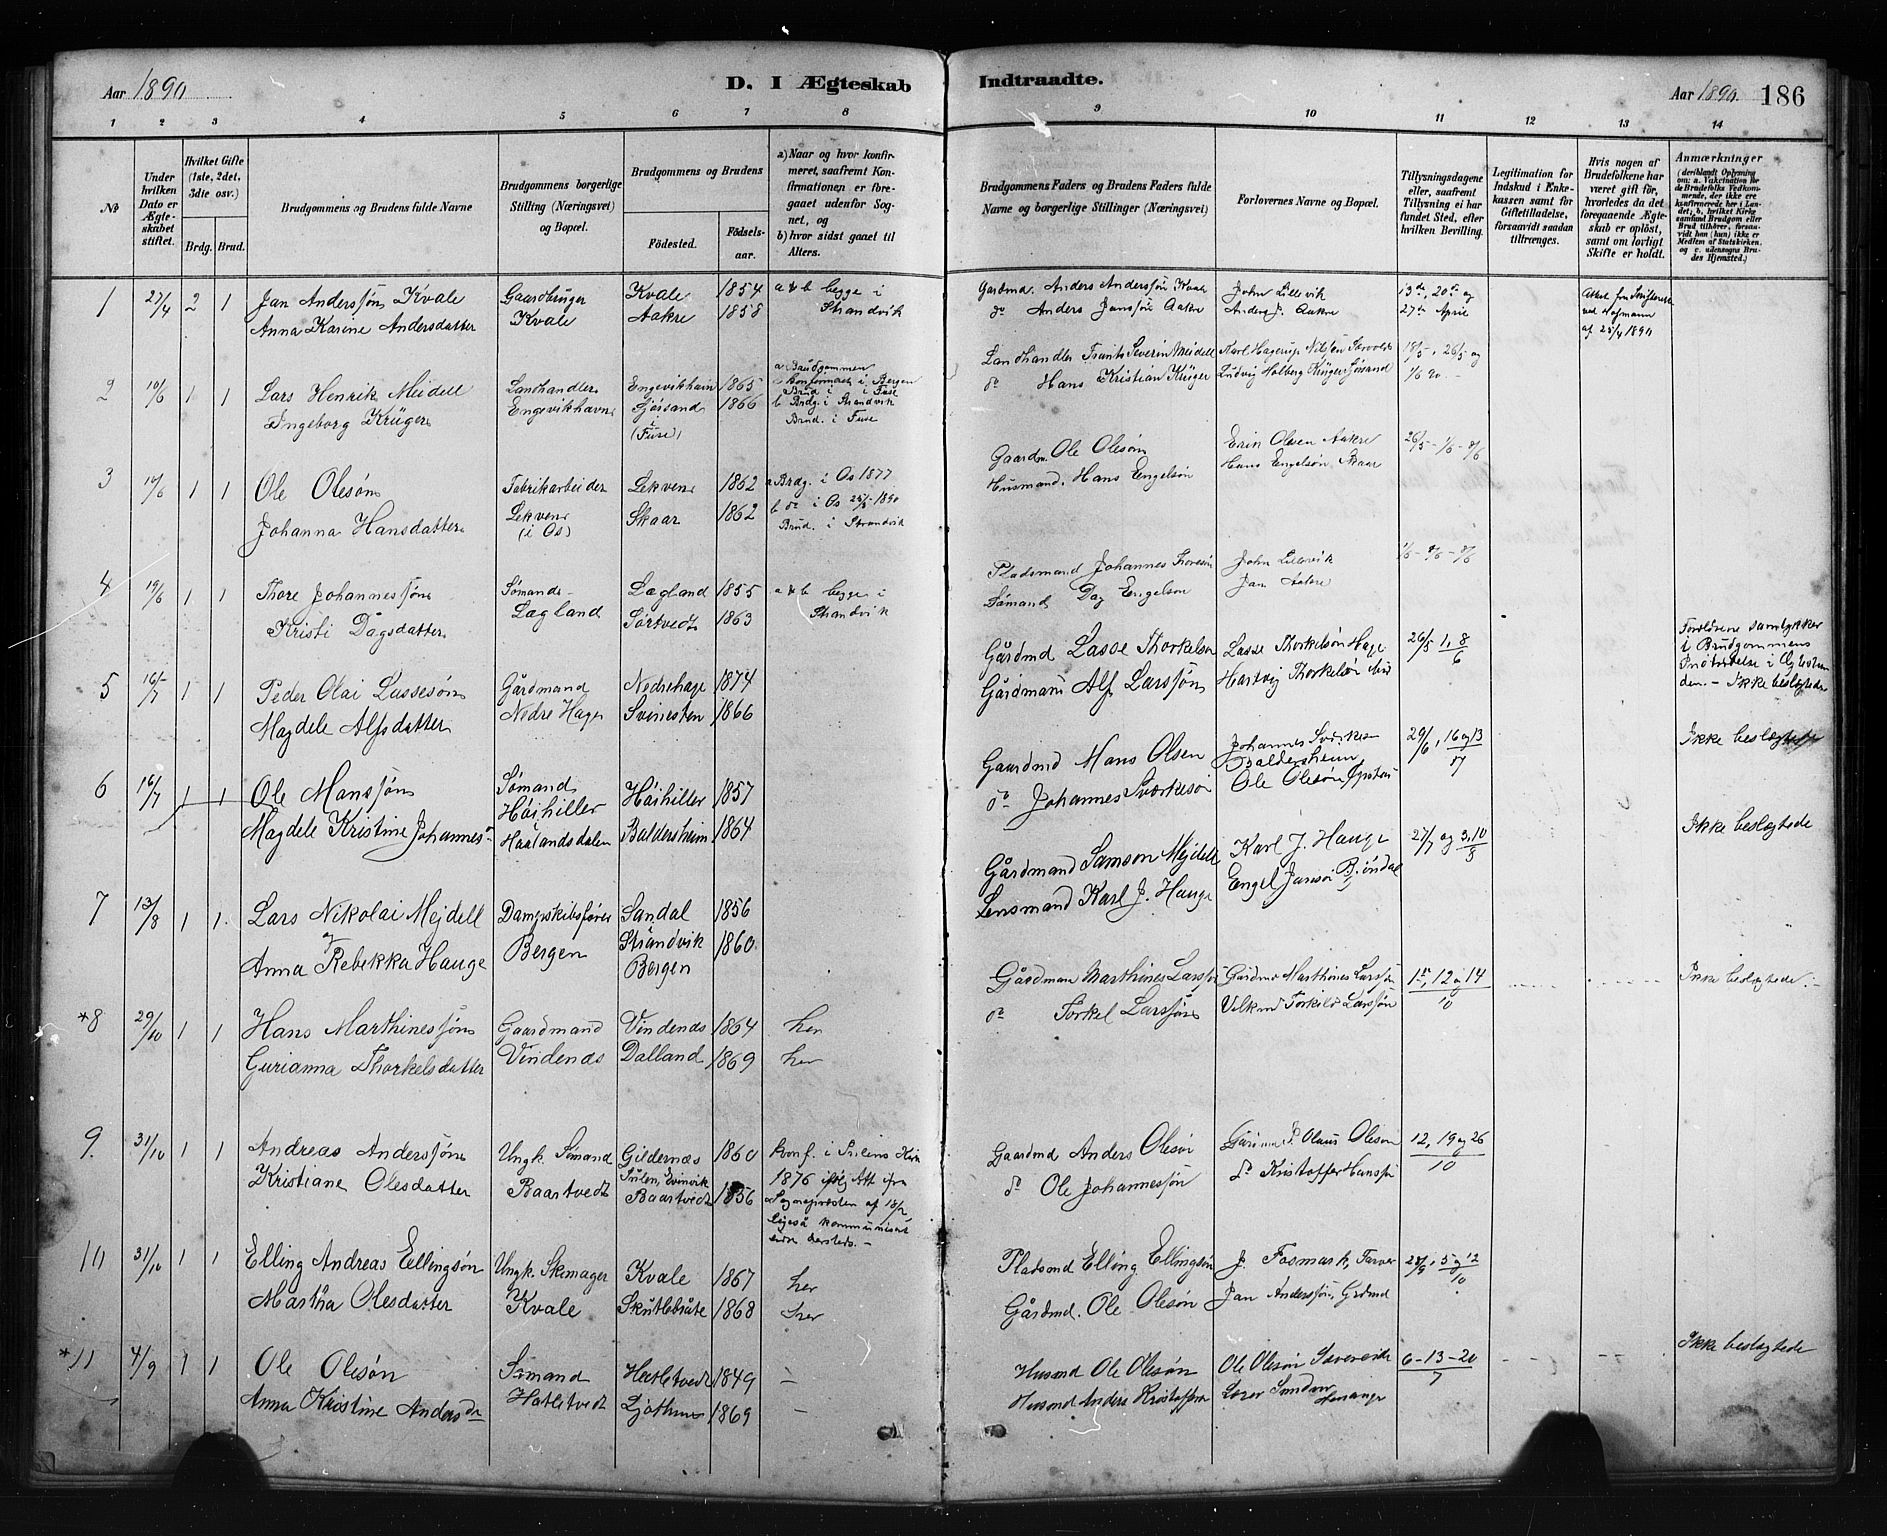 Aar 1890
D. I Ægteskab Indtraadte.
Aar 1890. 186
1 2 3 4 5 6 7 8 9 10 11 12 13 14
No
Under hvilken Dato er Ægteskabet stiftet.
Hvilket Gifte (1ste, 2det, 3die osv.)
Brdg. Brud.
Brudgommens og Brudens fulde Navne
Brudgommens borgerlige Stilling (Næringsvei) og Bopæl.
Brudgommens og Brudens
Födested.
Födselsaar.
a) Naar og hvor konfirmeret, saafremt Konfirmationen er foregaaet udenfor Sognet, og
b) hvor sidst gaaet til Alters.
Brudgommens Faders og Brudens Faders fulde Navne og borgerlige Stillinger (Næringsvei)
Forlovernes Navne og Bopæl.
Tillysningsdagene eller, saafremt Tillysning ei har fundet Sted, efter hvilken Bevilling.
Legitimation for Indskud i Enkekassen samt for Giftetilladelse, forsaavidt saadan tiltrænges.
Hvis nogen af Brudefolkene har været gift før, hvorledes da det foregaaende Ægteskab er oplöst, samt om lovligt Skifte er holdt.
Anmærkninger (deriblandt Oplysning om: a. Vakcination for de Brudefolks Vedkommende, der ikke ere konfirmerede her i Landet; b. hvilket Kirkesamfund Brudgom eller Brud tilhörer, forsaavidt han (hun) ikke er Medlem af Statskirken, og c. udensogns Brudes Hjemsted.)
1 27/4 2 1 Jan Anderssøn Kvale Gaardbruger Kvale 1854 a & b begge i
Anna Karine Andersdatter Kvale Aakre 1858 Strandvik
Gardmd. Anders Anderssøn Kvale John Lillevik 13de, 20de og
do Anders Janssøn Aakre Anders J. Aakre 27de April
af 25/4 1890
2 10/6 1 1 Lars Henrik Meidell Landhandler Engevikhavn 1865
Ingeborg Krüger Engevikhavn Sjørsand 1866
(i Fuse)
a Brudgommen
Konfirmeret i Bergen
Brud i Fuse
b Brdg. i Strandvik
Brud. i Fuse
Landhandler Frants Severin Meidell Karl Hagerup Nilssen 18/5, 26/5 og
do Hans Kristian Krüger Ludvig Holberg Krüger Sjørsand 1/6 90.
3 1 1 Ole Olesøn Fabrikarbeider Lekven 1862 a Brdg. i Os 1877
Johanna Hansdatter Lekven (i Os) Skaar 1862 b do i Os 1890
Brud. i Strandvik
Gaardm. Ole Olesøn Erik Olsen Aakre 26/5 - 1/6 - 8/6
Husmand. Hans Engelsøn Hans Engelsøn Skaar
4 19/6 1 1 Thore Johannessøn Sømand Lægland 1855 a & b begge i
Kristi Dagsdatter Lægland Sørtvedt 1863 Strandvik
Pladsmand Johannes Thoresøn John Lillevik 1/6 - 8/6
Sømand Dag Engelsøn Jan Aakre
5 16/7 1 1 Peder Olai Lassesøn Gårdmand Nedrehage 1874
Magdele Alfsdatter Nedre Hage Svinesten 1866
Gårdmd Lasse Thorkelsen Lasse Thorkelsøn Hage 26/5 1, 8/6
Gårdmand Alf Larssøn Hartvig Thorkelsøn
Forældrene samtykker
i Brudgommens
Indtrædelse i Ægtestan
den. - Ikke beslægtede
6 16/7 1 1 Ole Manssøn Sømand Høihiller 1857
Høihiller
Magdele Kristine Johannesd. Haalandsdalen Baldersheim 1864
Gaardmd Mons Olsen Johannes Sverkesen 29/6, 16 og 13
Baldersheim 17
do Johannes Sværkesøn Ole Olesøn
Ikke beslægtede
7 13/8 1 1. Lars Nikolai Mejdell Dampskibsfører Sandal 1856
og
Anna Rebekka Hauge Bergen Strandvik 1860.
Bergen
Gårdmand Samson Mejdell Karl J. Hauge 27/7 og 3, 10/8
Lensmand Karl J. Hauge Engel Jansøn Bjøndal
Ikke beslegtede
*8 29/10 1 1 Hans Marthinessøn Gaardmand Vindenes 1864 her
Gurianna Thorkelsdatter Vindenes Dalland 1869 her
Gårdman Marthines Larssøn Gårdmd Marthines Larssøn 12 og 14
do Torkel Larssøn Torkel Larssøn 10
Ikke beslægtede
9. 31/10 1 1 Andreas Anderssøn Ungk. Sømand Gildernæs 1860 Konf. i Sulens Kirke
Sulen, Evinvik 1876 ifølg Att fra
Kristiane Olesdatter Baartvedt Baartvedt 1856 Sognepræsten af 18/2
ligeså kommuniseret
Gaardmd Anders Olesøn P. Olaus Olesen 12, 19 og 26
do Ole Johannessøn do Kristoffer Hanssøn 10
10 31/10 1 1 Elling Andreas Ellingsøn Ungk. Skomager Kvale 1867 her
Martha Olesdatter Kvale Skutlebråte 1868 her
Pladsmd Elling Ellingsøn J. Fosmark, Farver 28/9, 5 og 12
Gårdmd. Ole Olesøn Jan Anderssøn, Grdmd 10
*11 4/9 1 1 Ole Olesøn Sømand Hatletvedt 1849 -
Anna Kristine Andersdr Hatletvedt Ljothus 1869 -
Husmd Ole Olesøn Ole Olesøn Sævereide 6 - 13 - 20
Husmd Anders Kristoffersen 7
Ikke beslægtede